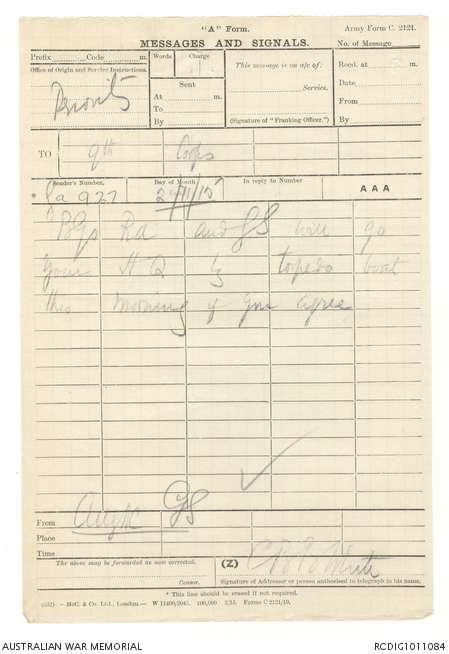 "A" Form.
Army Form C. 2121.
MESSAGES AND SIGNALS.
No. of Message
Prefix Code m.
Words Charge
This message is on a/c of:
Recd. at m.
Office of Origin and Service Instructions.
Priority
Sent
Date
At m.
Service.
From
To
By
(Signature of "Franking Officer.")
By
TO 9th Corps
Sender's Number.
Day of Month
In reply to Number
AAA
* Ga 927
24/11/15
and GS will go
your H Q by torpedo boat
this morning if you agree
From GS
Place
Time
The above may be forwarded as now corrected.
(Z)
Censor.
Signature of Addressor or person authorised to telegraph in his name.
* This line should be erased if not required.
AUSTRALIAN WAR MEMORIAL
RCDIG1011084